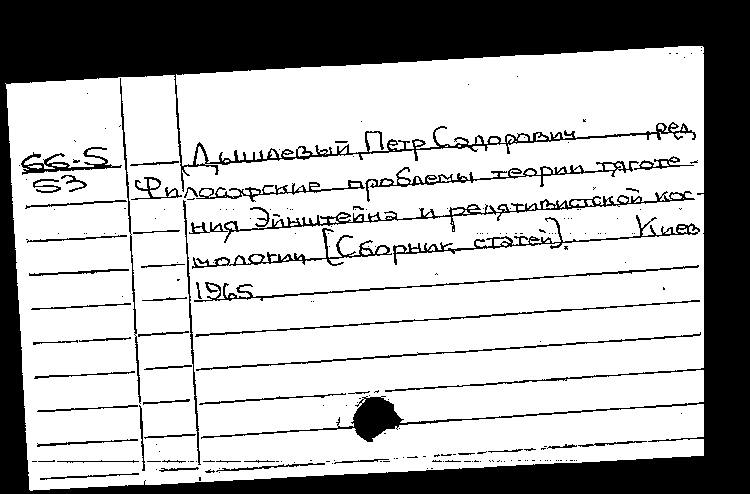 66-5 Дышлевый, Петр Сидорович , ред.
53 Философские проблемы теории тяготе-
ния Эйнштейна и релятивистской кос-
мологии [Сборник статей]. Киев
1965.